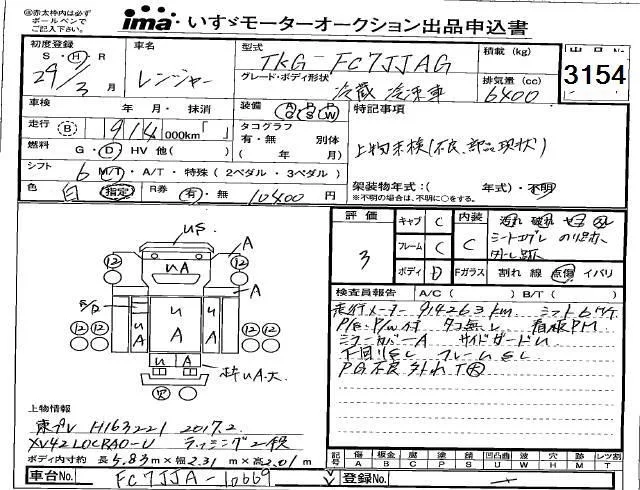 (注)赤太枠内は必ず
ボールペンで
ご記入下さい。
ima・いすゞモーターオークション出品申込書
初度登録
S・H・R
29年
3月
車名
レンジャー
型式
TKG-FC7JJAG
グレード・ボディ形状
冷蔵冷凍車
積載 (kg)
排気量(cc)
6400
出品No
3154
車検 年・月・抹消
装備
特記事項
走行 B 914 000km「 」
タコグラフ
有・無 別体
( 年 月)
上物未検(不良、部品現状)
燃料 G・D・HV 他( )
シフト 6 M/T・A/T・特殊(2ペダル・3ペダル)
色 白 指定 R券 有・無 10400円
架装物年式:( 年式)・不明
※不明の場合は、不明に○をする。
評価
3
キャブ C
フレーム C
ボディ D
内装
C
Fガラス 割れ 線 点傷 イバリ
シートコゲ
検査員報告 A/C( ) B/T( )
走行メーター 914263km シフト6
P/G P/W付 タコ無し 看板PM
ミラーカバーA サイドガードU
下回りSし フレームSし
PG不良 外れ T大
US
A
12
12
UA
A
U
A
U
A
U
A
U
A
12 12
12 12
枠UA大
上物情報
東プレ H163221 2017.2
XV42LOCRAO-U ラッシング2段
ボディ内寸約 長5.83m×幅2.31m×高2.01m
記号
傷 板金 腐 塗 錆 凹凸曲 波 穴 跡 レツ割
A B C P S U W H M T
車台No. FC7JJA-10669
登録No.